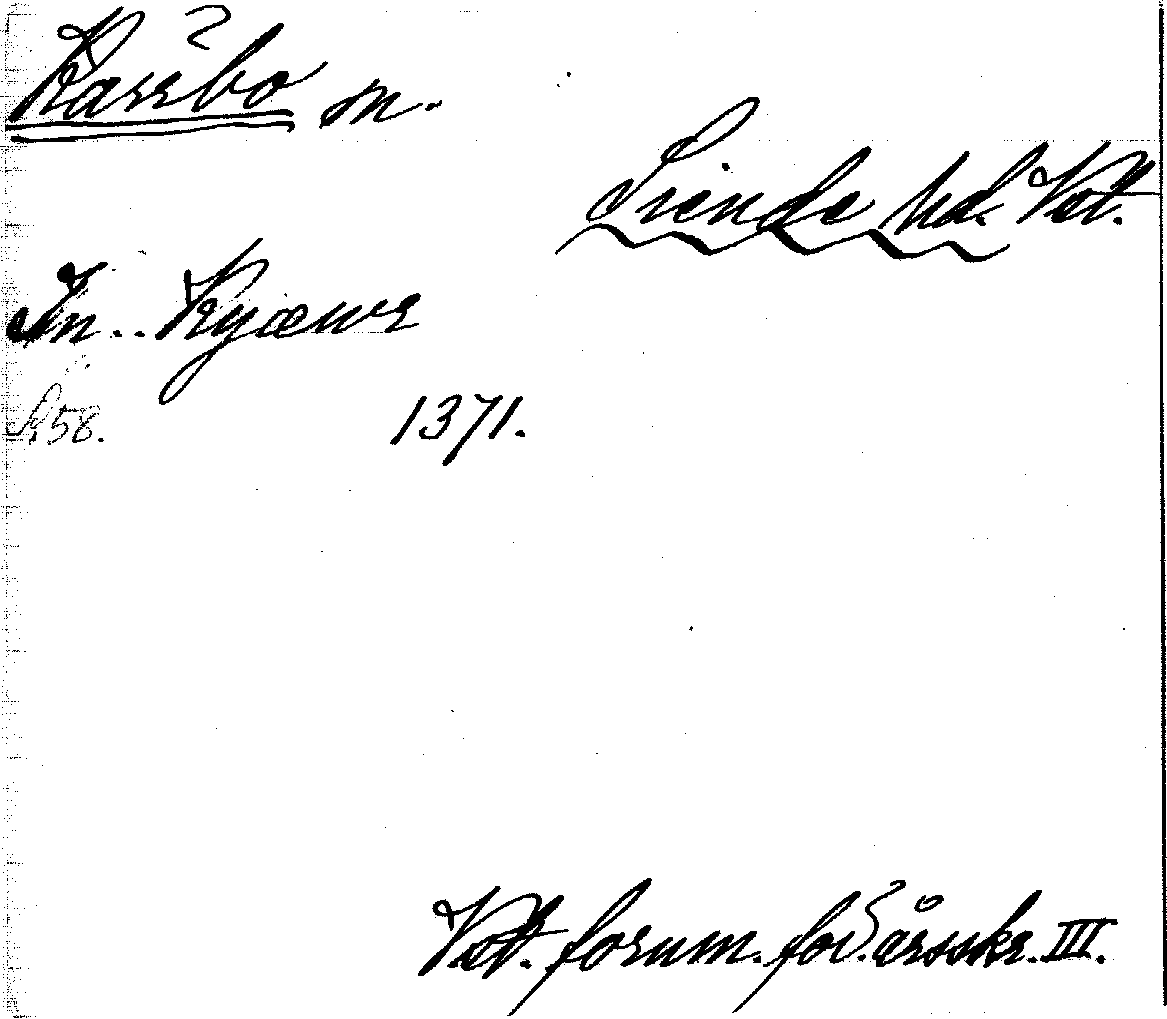 Kärrbo sn.
Siende hd. Vstl.
In .. Kyæwr
S. 58. 1371.
Vstl. fornm. för. årsskr. III.